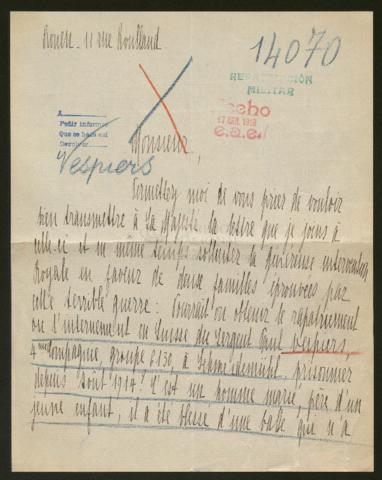 Rouen - 11 rue Roulland
14070
REPATRIACIÓN
MILITAR
A
Pedir informe
Que se hace así
Devolver
Hecho
17 1918
e.a.e.
Vespiers
Monsieur,
Permettez moi de vous prier de vouloir
bien transmettre à Sa Majesté la lettre que je joins à
celle-ci et en même temps solliciter la généreuse intervention
Royale en faveur de deux familles éprouvées par
cette terrible guerre : Pourrait-on obtenir le rapatriement
ou l'internement en Suisse du Sergent Paul Vespiers,
4ème Compagnie, groupe 6130, à Schneidemühl, prisonnier
depuis Août 1914? C'est un homme marié, père d'un
jeune enfant, il a été blessé d'une balle qui n'a